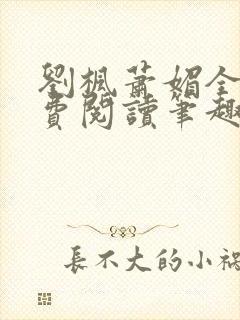 劉楓蕭媚全
費閱讀筆趣
長不大的小禍